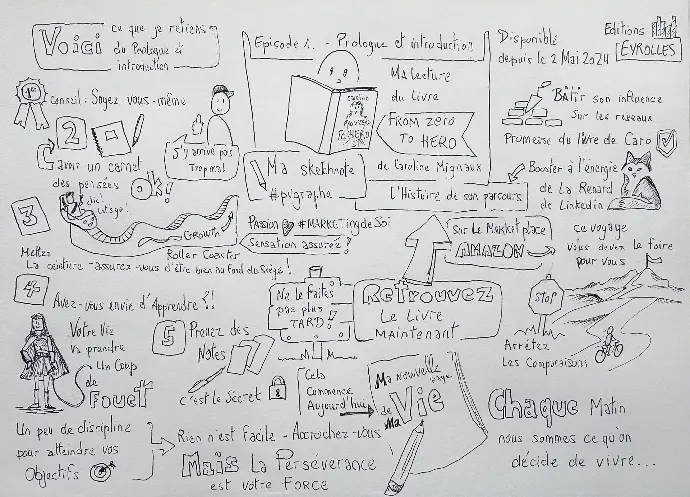 Voici ce que je retiens
du Prologue et
introduction
Episode 1. - Prologue et introduction
Disponible
depuis le 2 Mai 2024
Editions
EYROLLES
1er
conseil: Soyez vous-même
2
avoir un carnet
des pensées
OK!
J'y arrive pas
Trop mal
Ma lecture
du Livre
FROM ZERO
TO HERO
de Caroline Mignaux
Ma sketchnote
#pvgraphe
L'Histoire de son parcours
Bâtir son influence
sur les réseaux
Promesse du livre de Caro
Booster à l'énergie
de La Renard
de Linkedin
3
Let's go!
GROWTH
Roller Coaster
Mettez
La ceinture - assurez-vous d'être bien au fond du siège!
Passion #MARKETingdeSoi
Sensation assurée?
Sur la Market place
AMAZON
ce voyage
vous devez le faire
pour vous
4
Avez-vous envie d'Apprendre?!
Ne le faites
pas plus
TARD!
RETROUVEZ
Le Livre
Maintenant
STOP
Arrêtez
Les Comparaisons
Votre Vie
va prendre
Un Coup
de
FOUET
5
Prenez des
Notes
c'est le Secret
Cela
Commence
Aujourd'hui
Ma nouvelle
page
de Ma Vie
Chaque Matin
nous sommes ce qu'on
décide de vivre...
Un peu de discipline
pour atteindre vos
Objectifs
Rien n'est facile - Accrochez-vous
MAIS La Persévérance
est votre FORCE